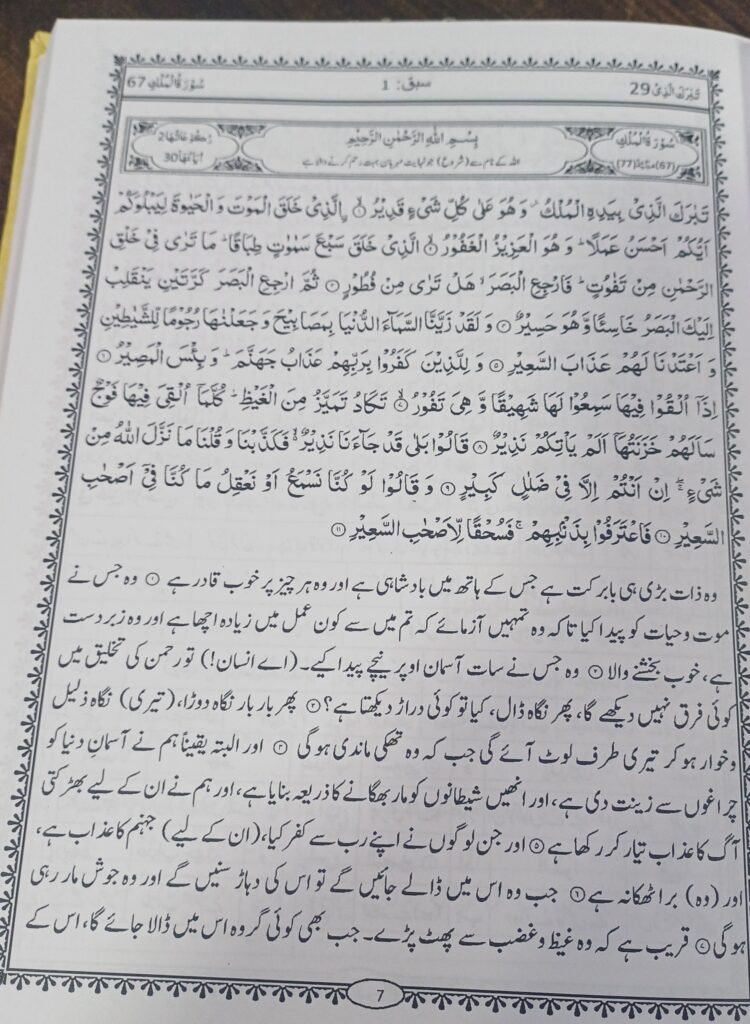 تَبٰرَكَ الَّذِیْ 29 سبق: 1 سُوْرَۃُ الْمُلْکِ 67
سُوْرَۃُ الْمُلْکِ بِسْمِ اللهِ الرَّحْمٰنِ الرَّحِیْمِ رُکُوْعَاتُهَا 2
(67) مَکِّیَّۃٌ (77) اللہ کے نام سے (شروع) جو نہایت مہربان بہت رحم کرنے والا ہے اٰیَاتُهَا 30
تَبٰرَكَ الَّذِیْ بِیَدِهِ الْمُلْكُ ؗ وَ هُوَ عَلٰى كُلِّ شَیْءٍ قَدِیْرُ ۙ۝۱ اِ۟لَّذِیْ خَلَقَ الْمَوْتَ وَ الْحَیٰوةَ لِیَبْلُوَكُمْ
اَیُّكُمْ اَحْسَنُ عَمَلًا ؕ وَ هُوَ الْعَزِیْزُ الْغَفُوْرُ ۙ۝۲ الَّذِیْ خَلَقَ سَبْعَ سَمٰوٰتٍ طِبَاقًا ؕ مَا تَرٰى فِیْ خَلْقِ
الرَّحْمٰنِ مِنْ تَفٰوُتٍ ؕ فَارْجِعِ الْبَصَرَ ۙ هَلْ تَرٰى مِنْ فُطُوْرٍ ۝۳ ثُمَّ ارْجِعِ الْبَصَرَ كَرَّتَیْنِ یَنْقَلِبْ
اِلَیْكَ الْبَصَرُ خَاسِئًا وَّ هُوَ حَسِیْرٌ ۝۴ وَ لَقَدْ زَیَّنَّا السَّمَآءَ الدُّنْیَا بِمَصَابِیْحَ وَ جَعَلْنٰهَا رُجُوْمًا لِّلشَّیٰطِیْنِ
وَ اَعْتَدْنَا لَهُمْ عَذَابَ السَّعِیْرِ ۝۵ وَ لِلَّذِیْنَ كَفَرُوْا بِرَبِّهِمْ عَذَابُ جَهَنَّمَ ؕ وَ بِئْسَ الْمَصِیْرُ ۝۶
اِذَاۤ اُلْقُوْا فِیْهَا سَمِعُوْا لَهَا شَهِیْقًا وَّ هِیَ تَفُوْرُ ۙ۝۷ تَكَادُ تَمَیَّزُ مِنَ الْغَیْظِ ؕ كُلَّمَاۤ اُلْقِیَ فِیْهَا فَوْجٌ
سَاَلَهُمْ خَزَنَتُهَاۤ اَلَمْ یَاْتِكُمْ نَذِیْرٌ ۝۸ قَالُوْا بَلٰى قَدْ جَآءَنَا نَذِیْرٌ ۙ۬ فَكَذَّبْنَا وَ قُلْنَا مَا نَزَّلَ اللّٰهُ مِنْ
شَیْءٍ ۖۚ اِنْ اَنْتُمْ اِلَّا فِیْ ضَلٰلٍ كَبِیْرٍ ۝۹ وَ قَالُوْا لَوْ كُنَّا نَسْمَعُ اَوْ نَعْقِلُ مَا كُنَّا فِیْۤ اَصْحٰبِ
السَّعِیْرِ ۝۱۰ فَاعْتَرَفُوْا بِذَنْۢبِهِمْ ۚ فَسُحْقًا لِّاَصْحٰبِ السَّعِیْرِ ۝۱۱
وہ ذات بڑی ہی بابرکت ہے جس کے ہاتھ میں بادشاہی ہے اور وہ ہر چیز پر خوب قادر ہے ۝۱ وہ جس نے
موت و حیات کو پیدا کیا تاکہ وہ تمہیں آزمائے کہ تم میں سے کون عمل میں زیادہ اچھا ہے اور وہ زبردست
ہے، خوب بخشنے والا ۝۲ وہ جس نے سات آسمان اوپر نیچے پیدا کیے۔ (اے انسان!) تو رحمن کی تخلیق میں
کوئی فرق نہیں دیکھے گا، پھر نگاہ ڈال، کیا تو کوئی دراڑ دیکھتا ہے؟ ۝۳ پھر بار بار نگاہ دوڑا، (تیری) نگاہ ذلیل
و خوار ہو کر تیری طرف لوٹ آئے گی جب کہ وہ تھکی ماندی ہوگی ۝۴ اور البتہ یقیناً ہم نے آسمانِ دنیا کو
چراغوں سے زینت دی ہے، اور انھیں شیطانوں کو مار بھگانے کا ذریعہ بنایا ہے، اور ہم نے ان کے لیے بھڑکتی
آگ کا عذاب تیار کر رکھا ہے ۝۵ اور جن لوگوں نے اپنے رب سے کفر کیا، (ان کے لیے) جہنم کا عذاب ہے،
اور (وہ) برا ٹھکانہ ہے ۝۶ جب وہ اس میں ڈالے جائیں گے تو اس کی دہاڑ سنیں گے اور وہ جوش مار رہی
ہوگی ۝۷ قریب ہے کہ وہ غیظ و غضب سے پھٹ پڑے۔ جب بھی کوئی گروہ اس میں ڈالا جائے گا، اس کے
7